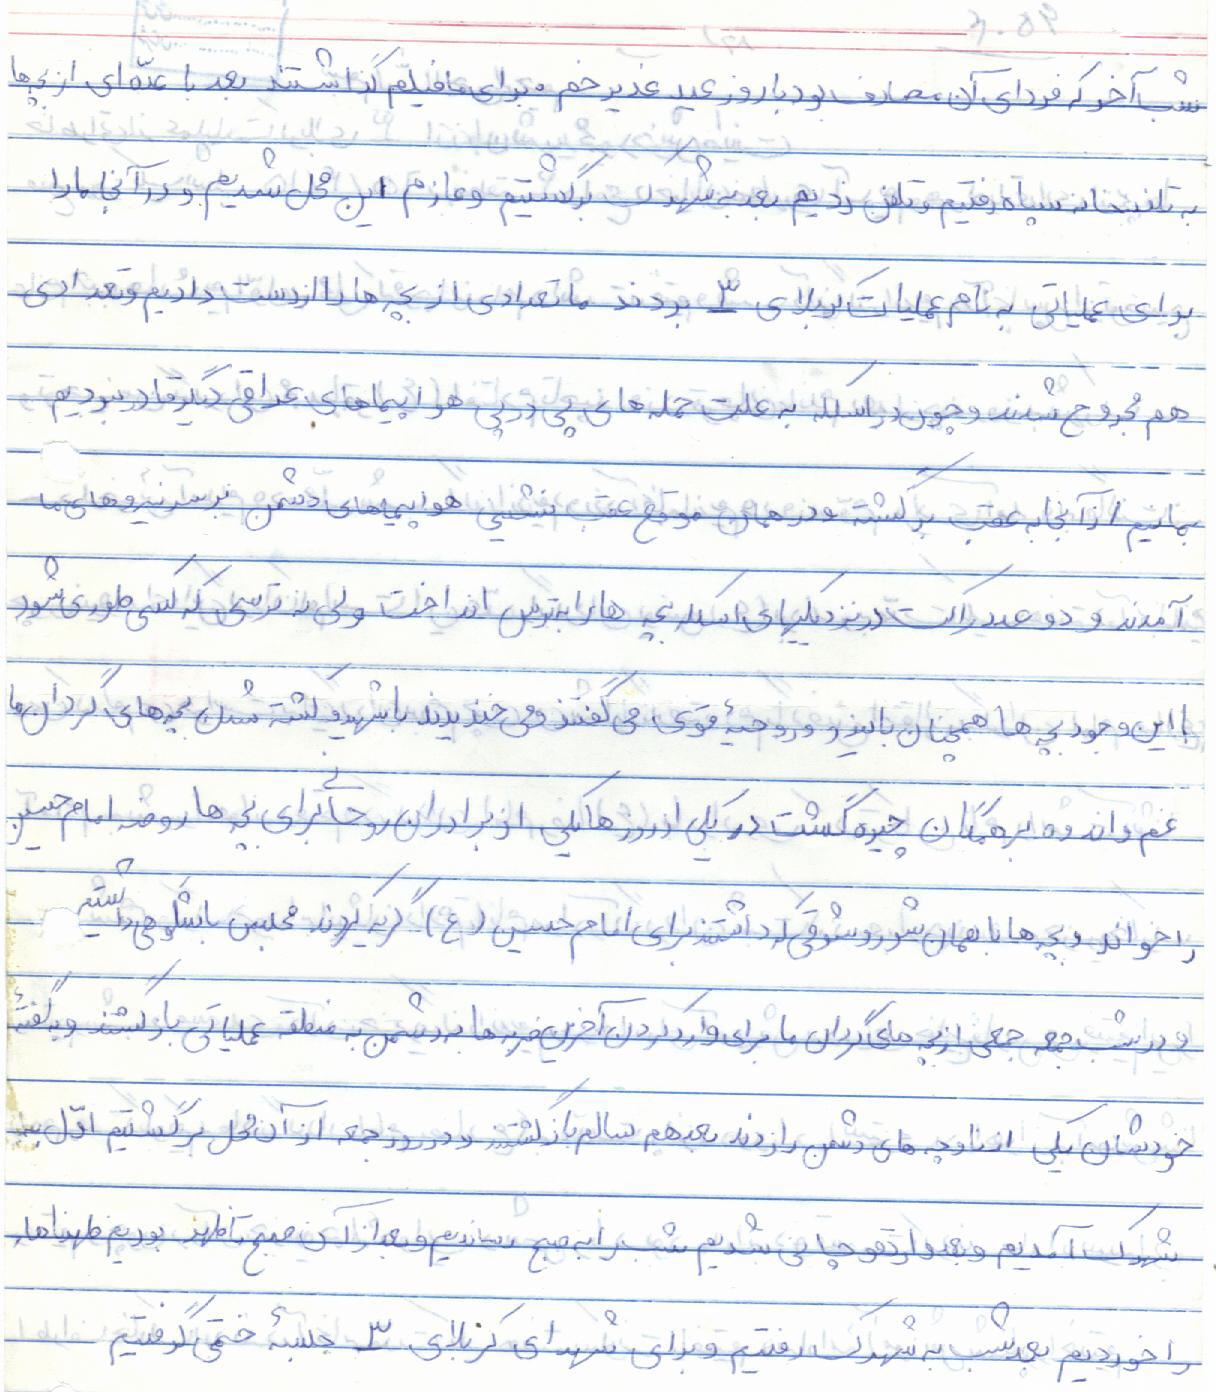 شب آخر که فردای آن مصادف بود با روز عید غدیر خم و برای ما فیلم گذاشتند بعد با عدّه‌ای از بچه‌ها
به تلفنخانه سپاه رفتیم و تلفن زدیم بعد به شهرک برگشتیم و عازم این محل شدیم و در آنجا ما را
برای عملیاتی به نام عملیات کربلای ۳ بردند ما تعدادی از بچه ها را از دست دادیم و تعدادی
هم مجروح شدند و چون در اسکله به علت حمله های پی در پی هواپیماهای عراقی دیگر قادر نبودیم
بمانیم از آنجا به عقب برگشته و در همان موقع عقب نشینی هواپیماهای دشمن بر سر نیروهای ما
آمدند و دو عدد راکت در نزدیکیهای اسکله بچه ها را به ترس انداخت ولی نه ترسی که کسی طوری شود
با این وجود بچه ها همچنان با نیرو و روحیۀ قوی می گفتند و می خندیدند با شهید و کشته شدن بچه های گردان ما
غم و اندوه بر همگان چیره گشت در یکی از روزها یکی از برادران روحانی برای بچه ها روضه امام حسین
را خواند و بچه ها با همان شور و شوقی که داشتند برای امام حسین (ع) گریه کردند مجلس باشکوهی داشتیم
و در شب جمعه جمعی از بچه های گردان ما برای وارد کردن آخرین ضربه ها به دشمن به منطقه عملیاتی بازگشتند و به گفتۀ
خودشان یکی از ناوچه های دشمن را زدند بعد هم سالم بازگشتند و در روز جمعه از آن محل برگشتیم اوّل به
شهرک آمدیم و بعد وارد شدیم شب را به صبح رساندیم و بعد از آن صبح تا ظهر بودیم ظهر ناهار
را خوردیم بعد شب به شهرک رفتیم و برای شهدای کربلای ۳ جلسۀ ختمی گرفتیم